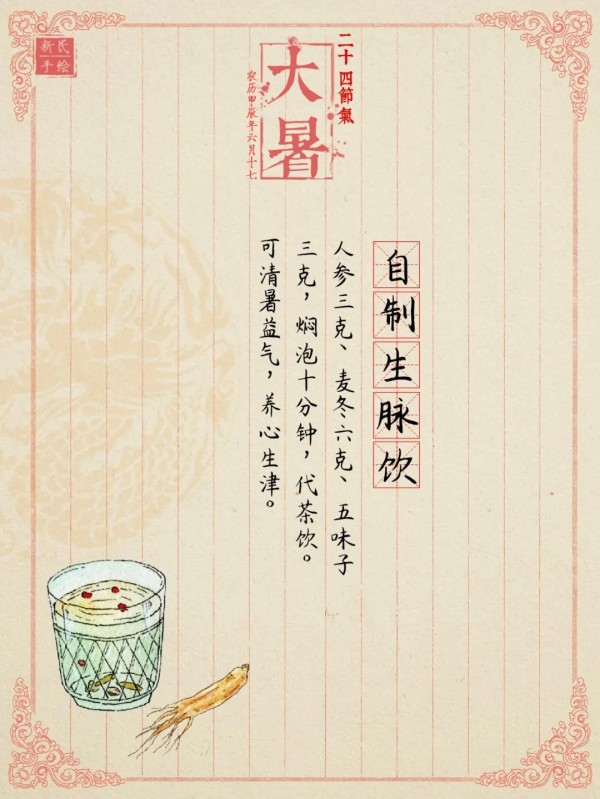 新民
手绘
二十四節氣
大暑
农历甲辰年六月十七
自制生脉饮
人参三克、麦冬六克、五味子
三克，焖泡十分钟，代茶饮。
可清暑益气，养心生津。